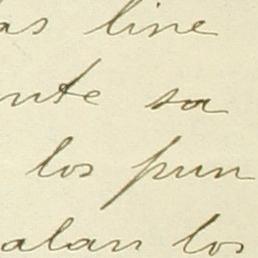 as line
nte sa
los pun
alan los